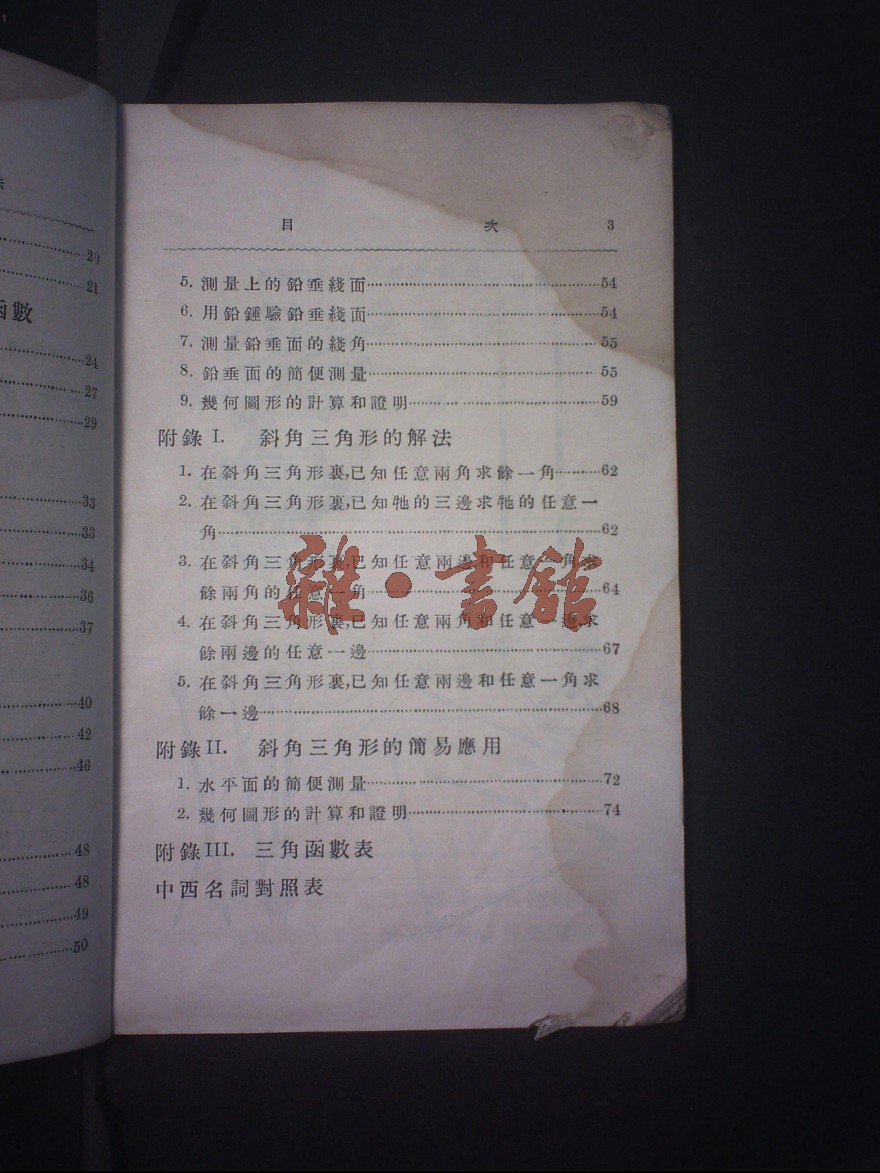 20
21
函數
24
27
29
33
33
34
36
37
40
42
46
48
48
49
50
目 次 3
5. 測量上的鉛垂綫面……54
6. 用鉛錘驗鉛垂綫面……54
7. 測量鉛垂面的綫角……55
8. 鉛垂面的簡便測量……55
9. 幾何圖形的計算和證明……59
附錄 I. 斜角三角形的解法
1. 在斜角三角形裏,已知任意兩角求餘一角……62
2. 在斜角三角形裏,已知牠的三邊求牠的任意一
角……62
3. 在斜角三角形裏,已知任意兩邊和任意一角求
餘兩角的任意一角……64
4. 在斜角三角形裏,已知任意兩角和任意一邊,求
餘兩邊的任意一邊……67
5. 在斜角三角形裏,已知任意兩邊和任意一角求
餘一邊……68
附錄 II. 斜角三角形的簡易應用
1. 水平面的簡便測量……72
2. 幾何圖形的計算和證明……74
附錄 III. 三角函數表
中西名詞對照表
雜·書館